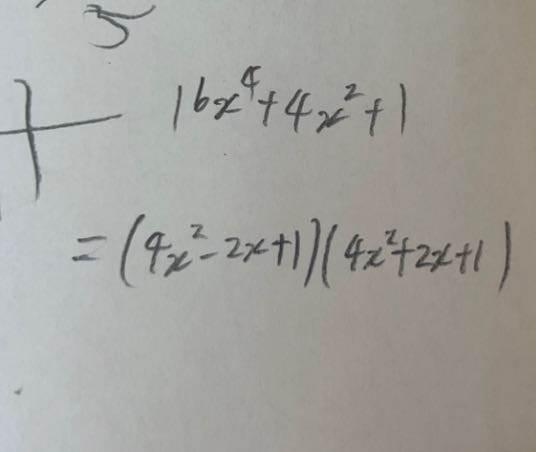 5
16x⁴+4x²+1
=(4x²-2x+1)(4x²+2x+1)